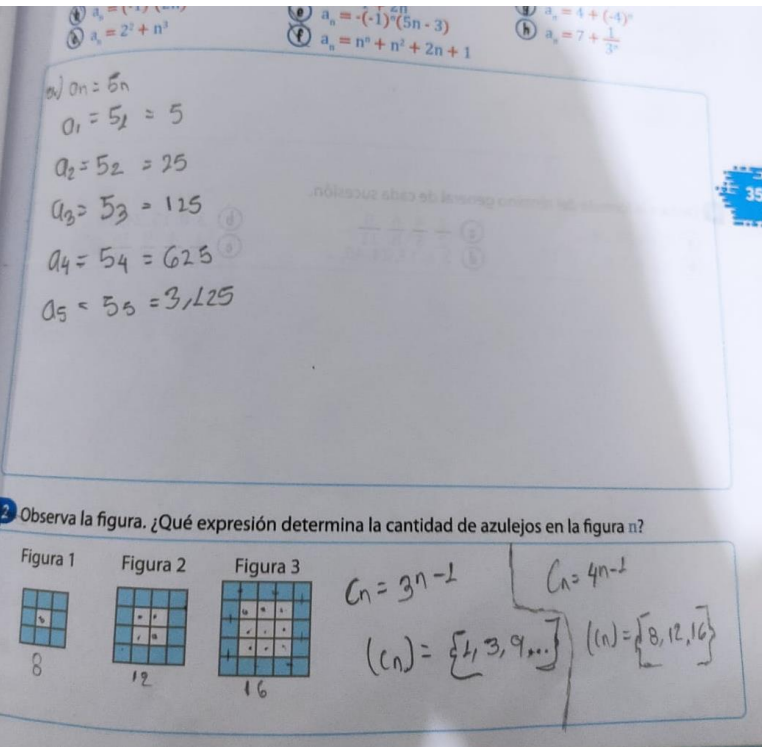 aₙ = 2² + n³
e aₙ = -(-1)ⁿ(5n - 3)
f aₙ = nⁿ + n² + 2n + 1
g aₙ = 4 + (-4)ⁿ
h aₙ = 7 + 1/3ⁿ
a) an = 5n
a1 = 51 = 5
a2 = 52 = 25
a3 = 53 = 125
a4 = 54 = 625
a5 = 55 = 3,125
35
2 Observa la figura. ¿Qué expresión determina la cantidad de azulejos en la figura n?
Figura 1 Figura 2 Figura 3
8 12 16
Cn = 3n-1
(Cn) = {1, 3, 9, ...}
Cn = 4n-1
(Cn) = {8, 12, 16}